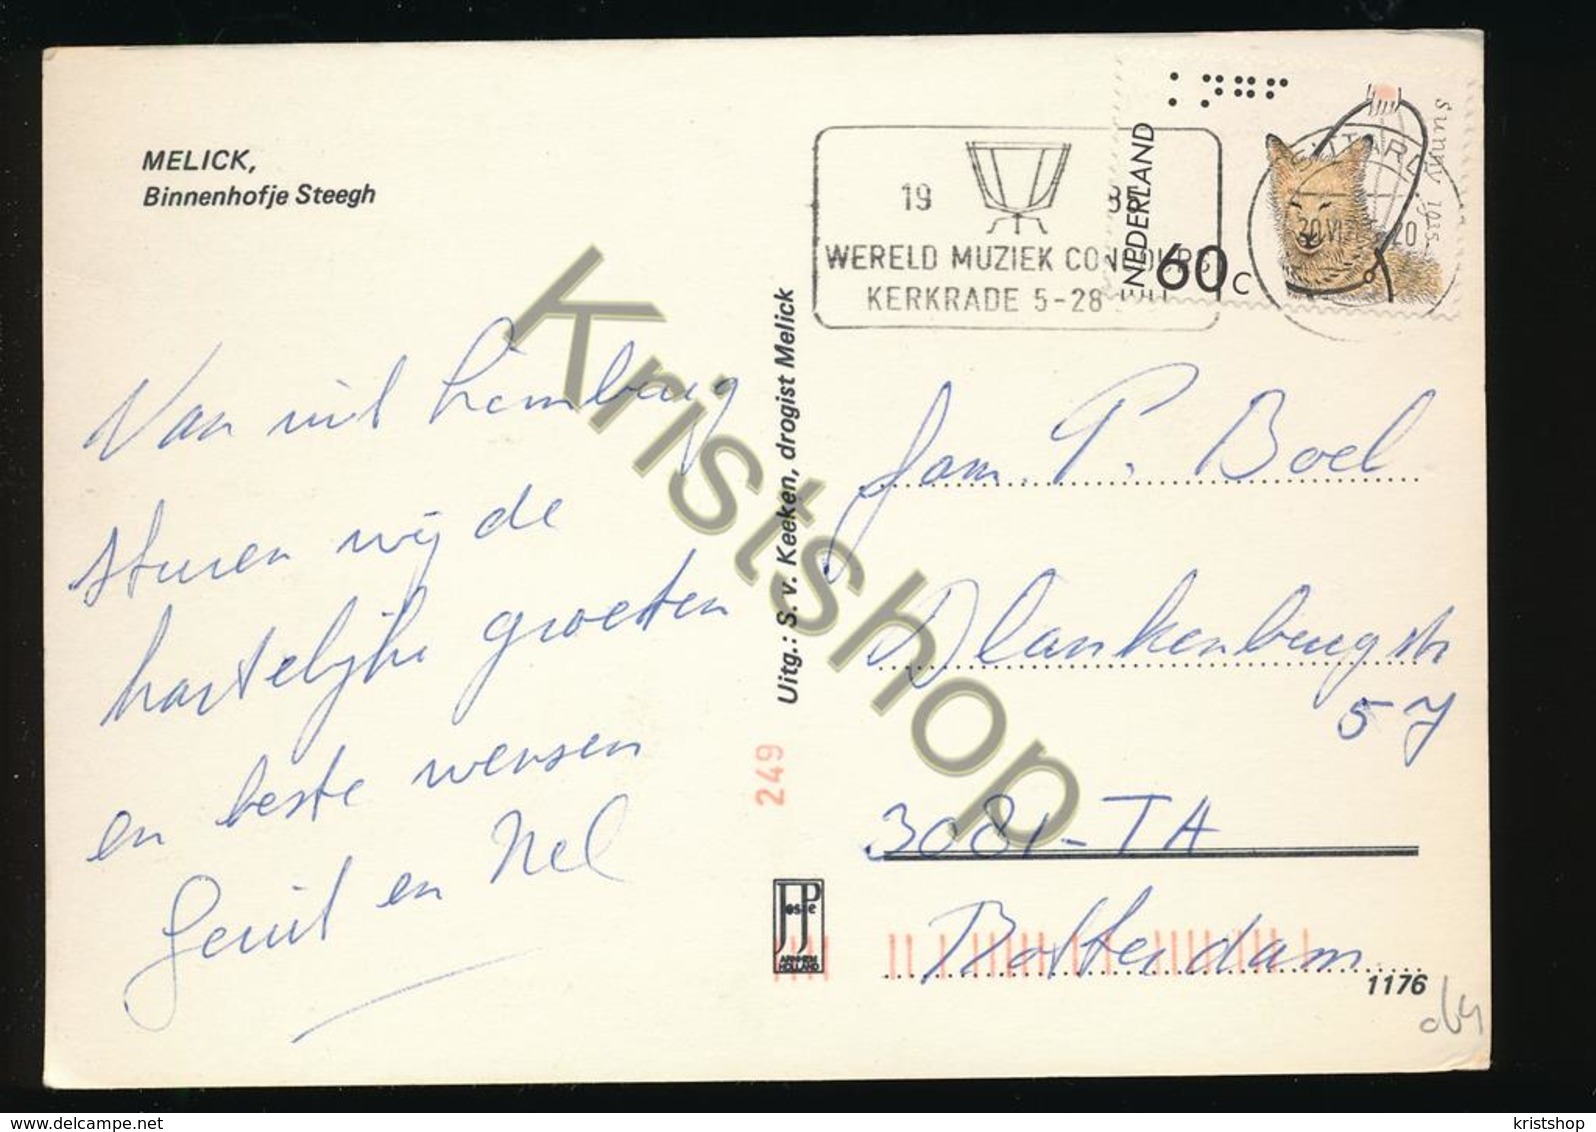 MELICK,
Binnenhofje Steegh
Van uit Limburg
sturen wij de
hartelijke groeten
en beste wensen
Gerrit en Nel
Uitg.: S. v. Keeken, drogist Melick
249
JosPe
ARNHEM
HOLLAND
19 85
WERELD MUZIEK CONCOURS
KERKRADE 5-28 JULI
NEDERLAND
60c
sunny 1985
SITTARD
Fam. P. Boel
Blankenburgstr
57
3081-TA
Rotterdam
1176
Kristshop
www.delcampe.net
kristshop